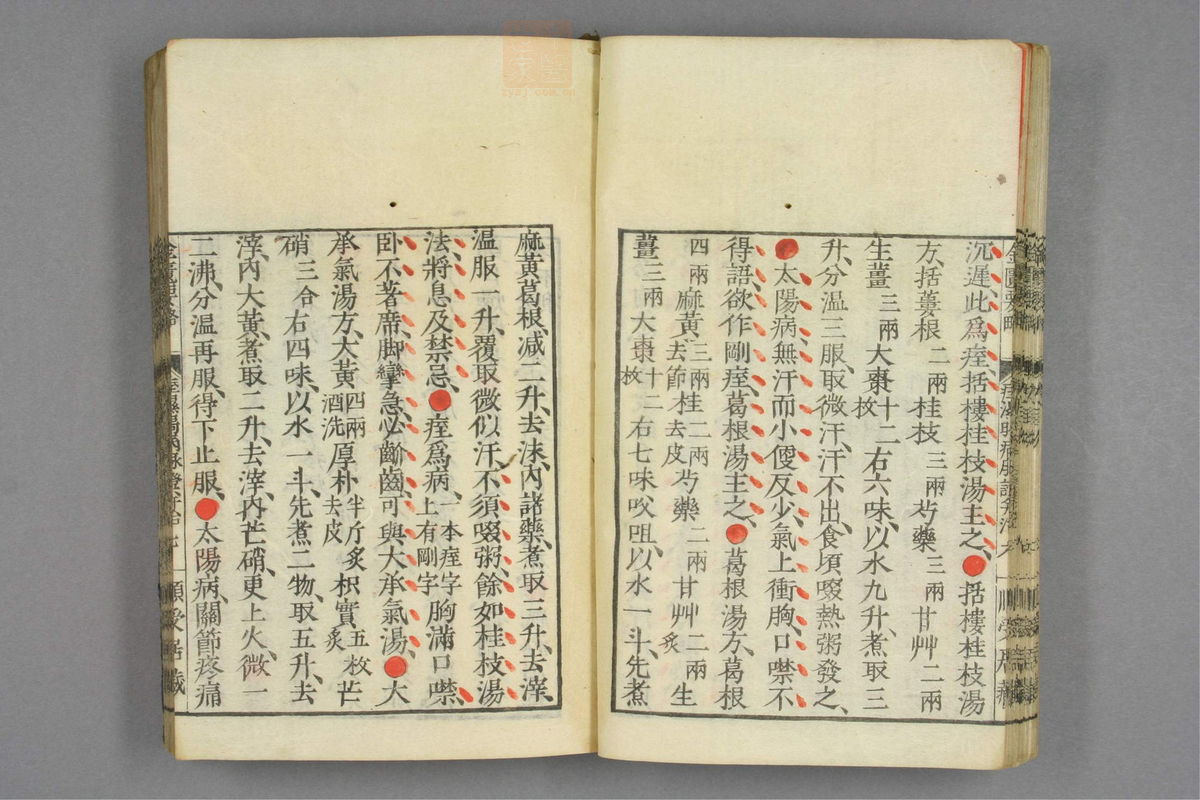 沉遲此爲痓括樓桂枝湯主之括樓桂枝湯
方括蔞根二兩桂枝三兩芍藥三兩甘艸二兩
生薑三兩大棗十二枚右六味以水九升煮取三
升分温三服取微汗汗不出食頃啜熱粥發之
太陽病無汗而小便反少氣上衝胸口噤不
得語欲作剛痓葛根湯主之葛根湯方葛根
四兩麻黃三兩去節桂二兩去皮芍藥二兩甘艸二兩炙生
薑三兩大棗十二枚右七味㕮咀以水一斗先煮
麻黃葛根减二升去沫内諸藥煮取三升去滓
温服一升覆取微似汗不須啜粥餘如桂枝湯
法將息及禁忌痓爲病一本痓字上有剛字胸滿口噤
卧不著席脚攣急必齘齒可與大承氣湯大
承氣湯方大黃四兩酒洗厚朴半斤炙去皮枳實五枚炙芒
硝三合右四味以水一斗先煮二物取五升去
滓内大黃煮取二升去滓内芒硝更上火微一
二沸分温再服得下止服太陽病關節疼痛
zysj.com.cn